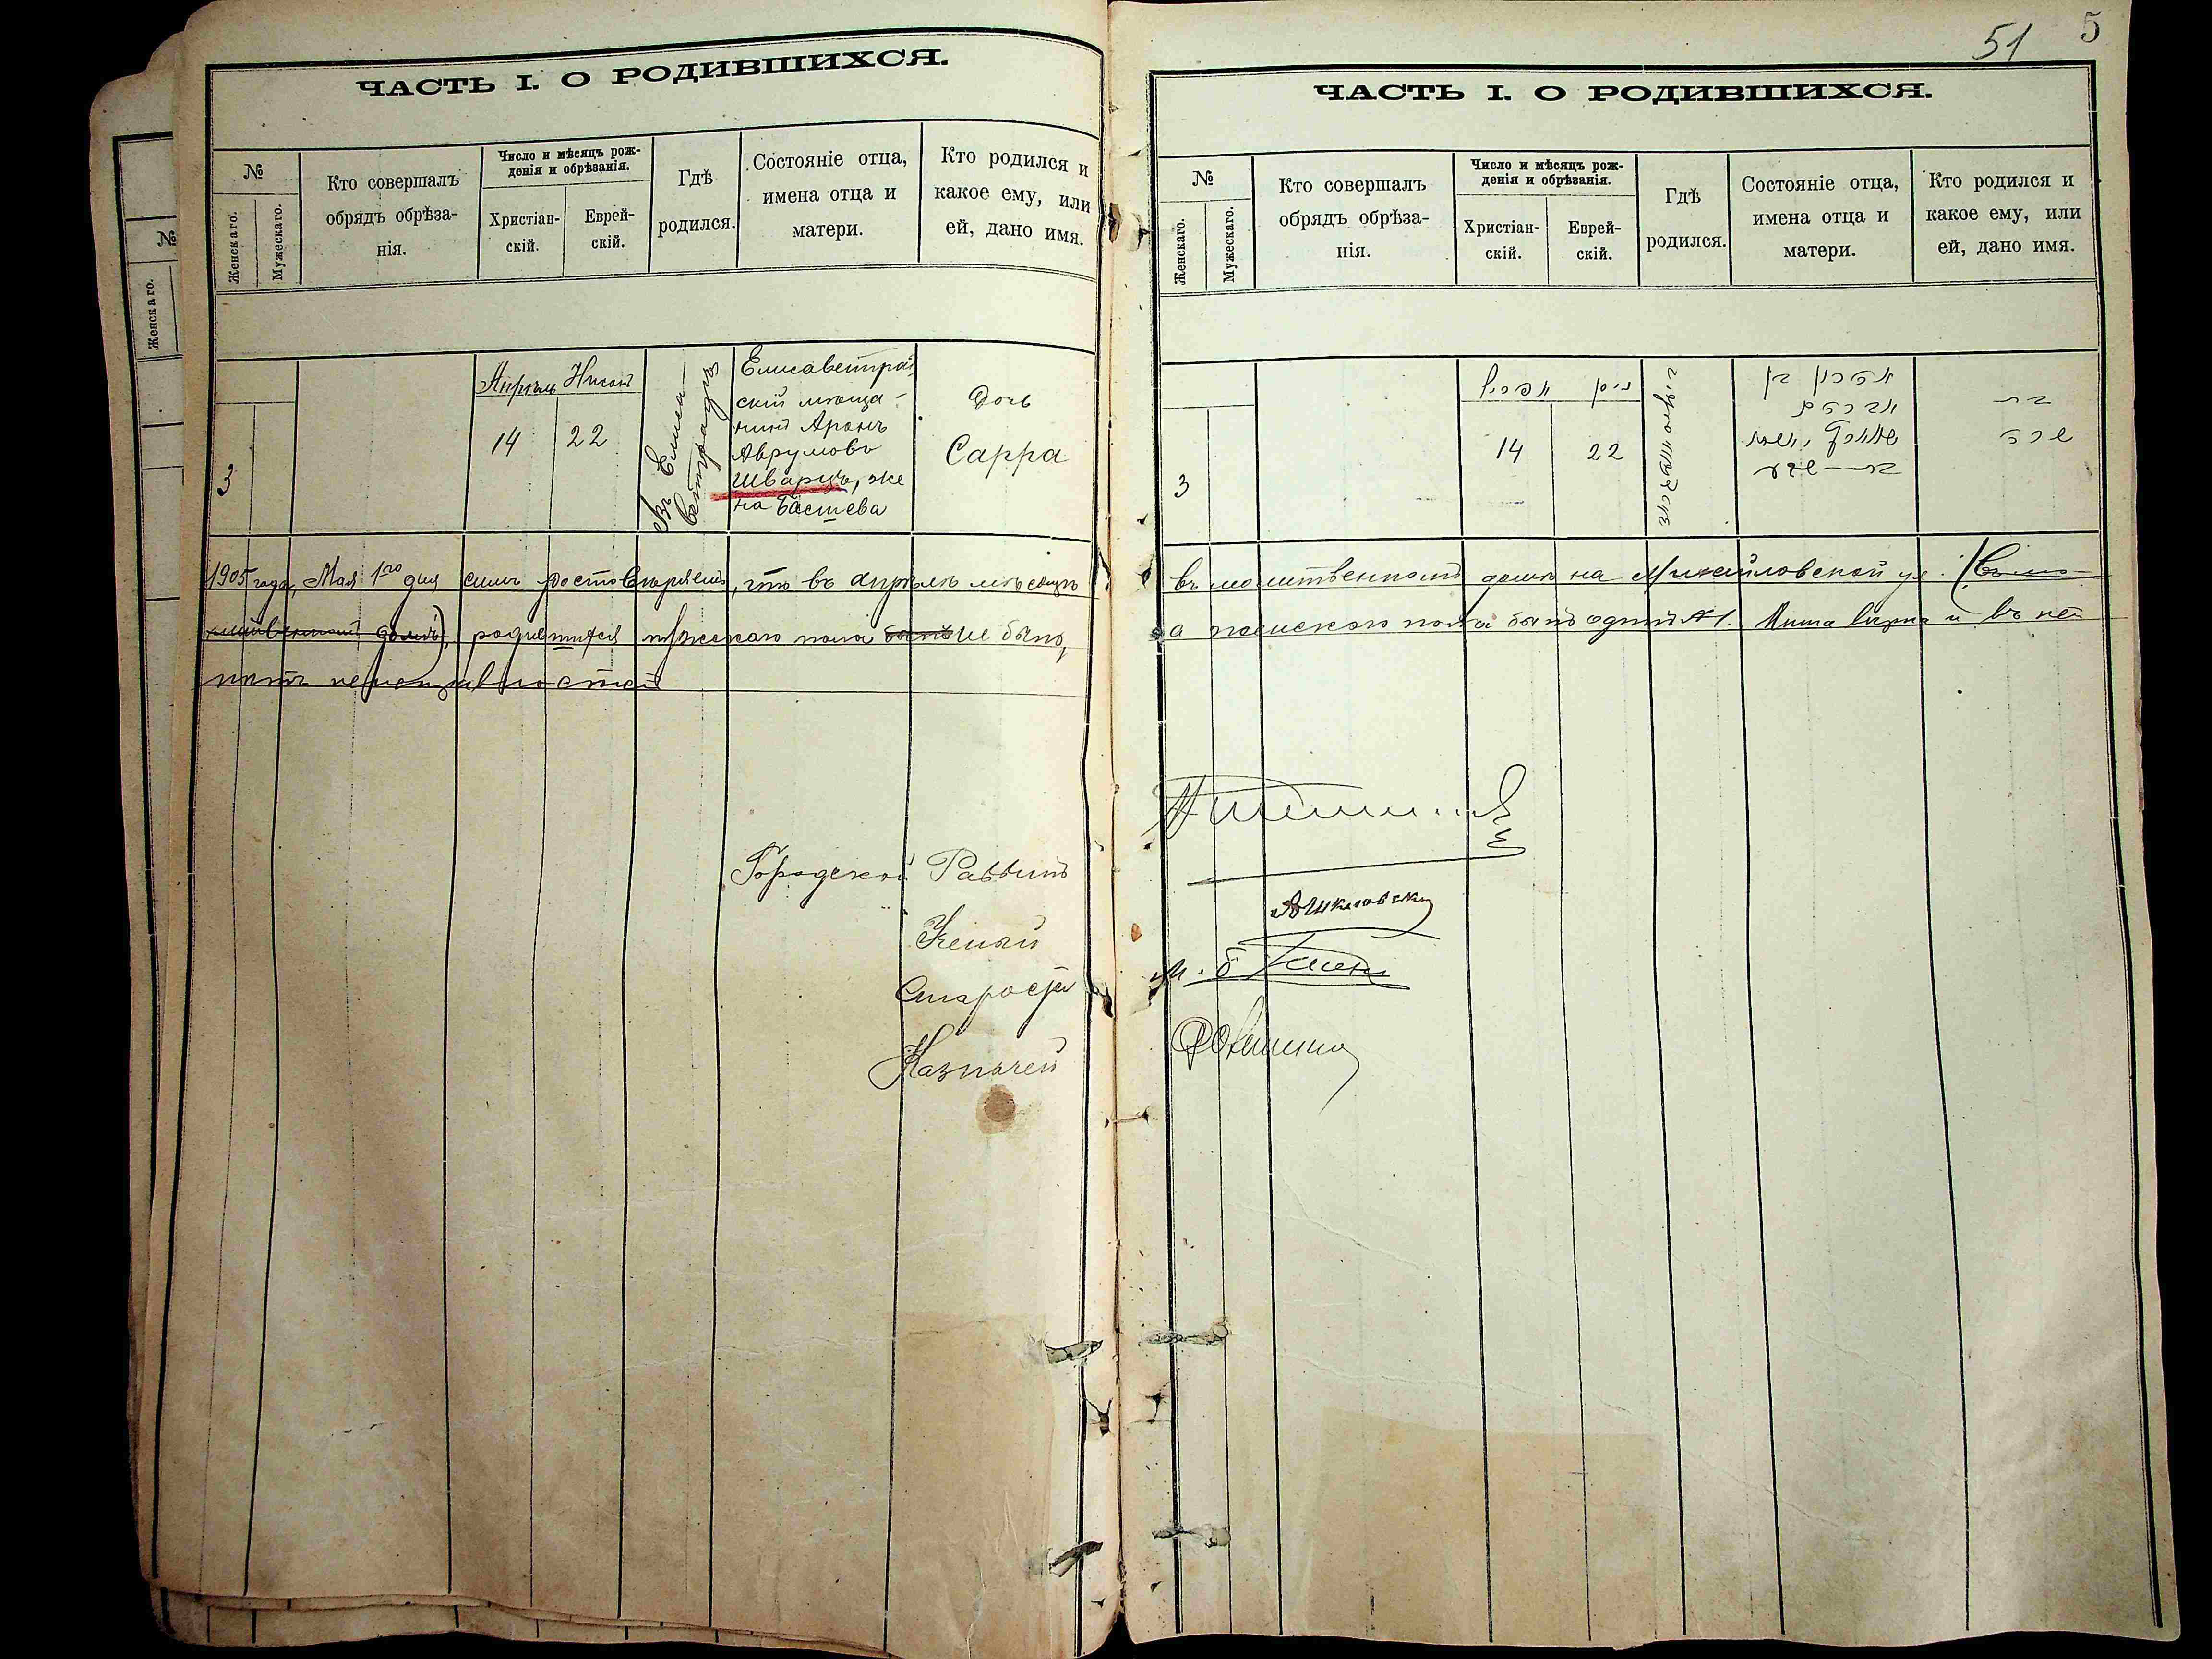 51 5
ЧАСТЬ I. О РОДИВШИХСЯ.
№
Женскаго.
Мужескаго.
Кто совершалъ
обрядъ обрѣза-
нія.
Число и мѣсяцъ рож-
денія и обрѣзанія.
Христіан-
скій.
Еврей-
скій.
Гдѣ
родился.
Состояніе отца,
имена отца и
матери.
Кто родился и
какое ему, или
ей, дано имя.
3
Апрель Нисонъ
14 22
Въ Елиса-
ветградѣ
Елисаветград-
скій мѣща-
нинъ Аронъ
Аврумовъ
Шварцъ, же
на Басшева
Дочь
Сарра
1905 года, Мая 1го дня симъ достовѣряемъ, что въ апрѣлѣ мѣсяцѣ
молитвенномъ домѣ), родившихся мужскаго пола не было,
нѣтъ неисправностей
Городской Раввинъ
Ученый
Староста
Казначей
№
Женскаго.
ЧАСТЬ I. О РОДИВШИХСЯ.
№
Женскаго.
Мужескаго.
Кто совершалъ
обрядъ обрѣза-
нія.
Число и мѣсяцъ рож-
денія и обрѣзанія.
Христіан-
скій.
Еврей-
скій.
Гдѣ
родился.
Состояніе отца,
имена отца и
матери.
Кто родился и
какое ему, или
ей, дано имя.
3
אפריל ניסן
14 22
אהרן בן
אברהם
שווארץ
בת-שבע
בת
שרה
въ молитвенномъ домѣ на Михайловской ул. (въ мо-
а женскаго пола былъ одинъ № 1. вѣрна и въ ней